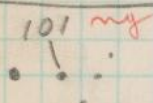 101 my